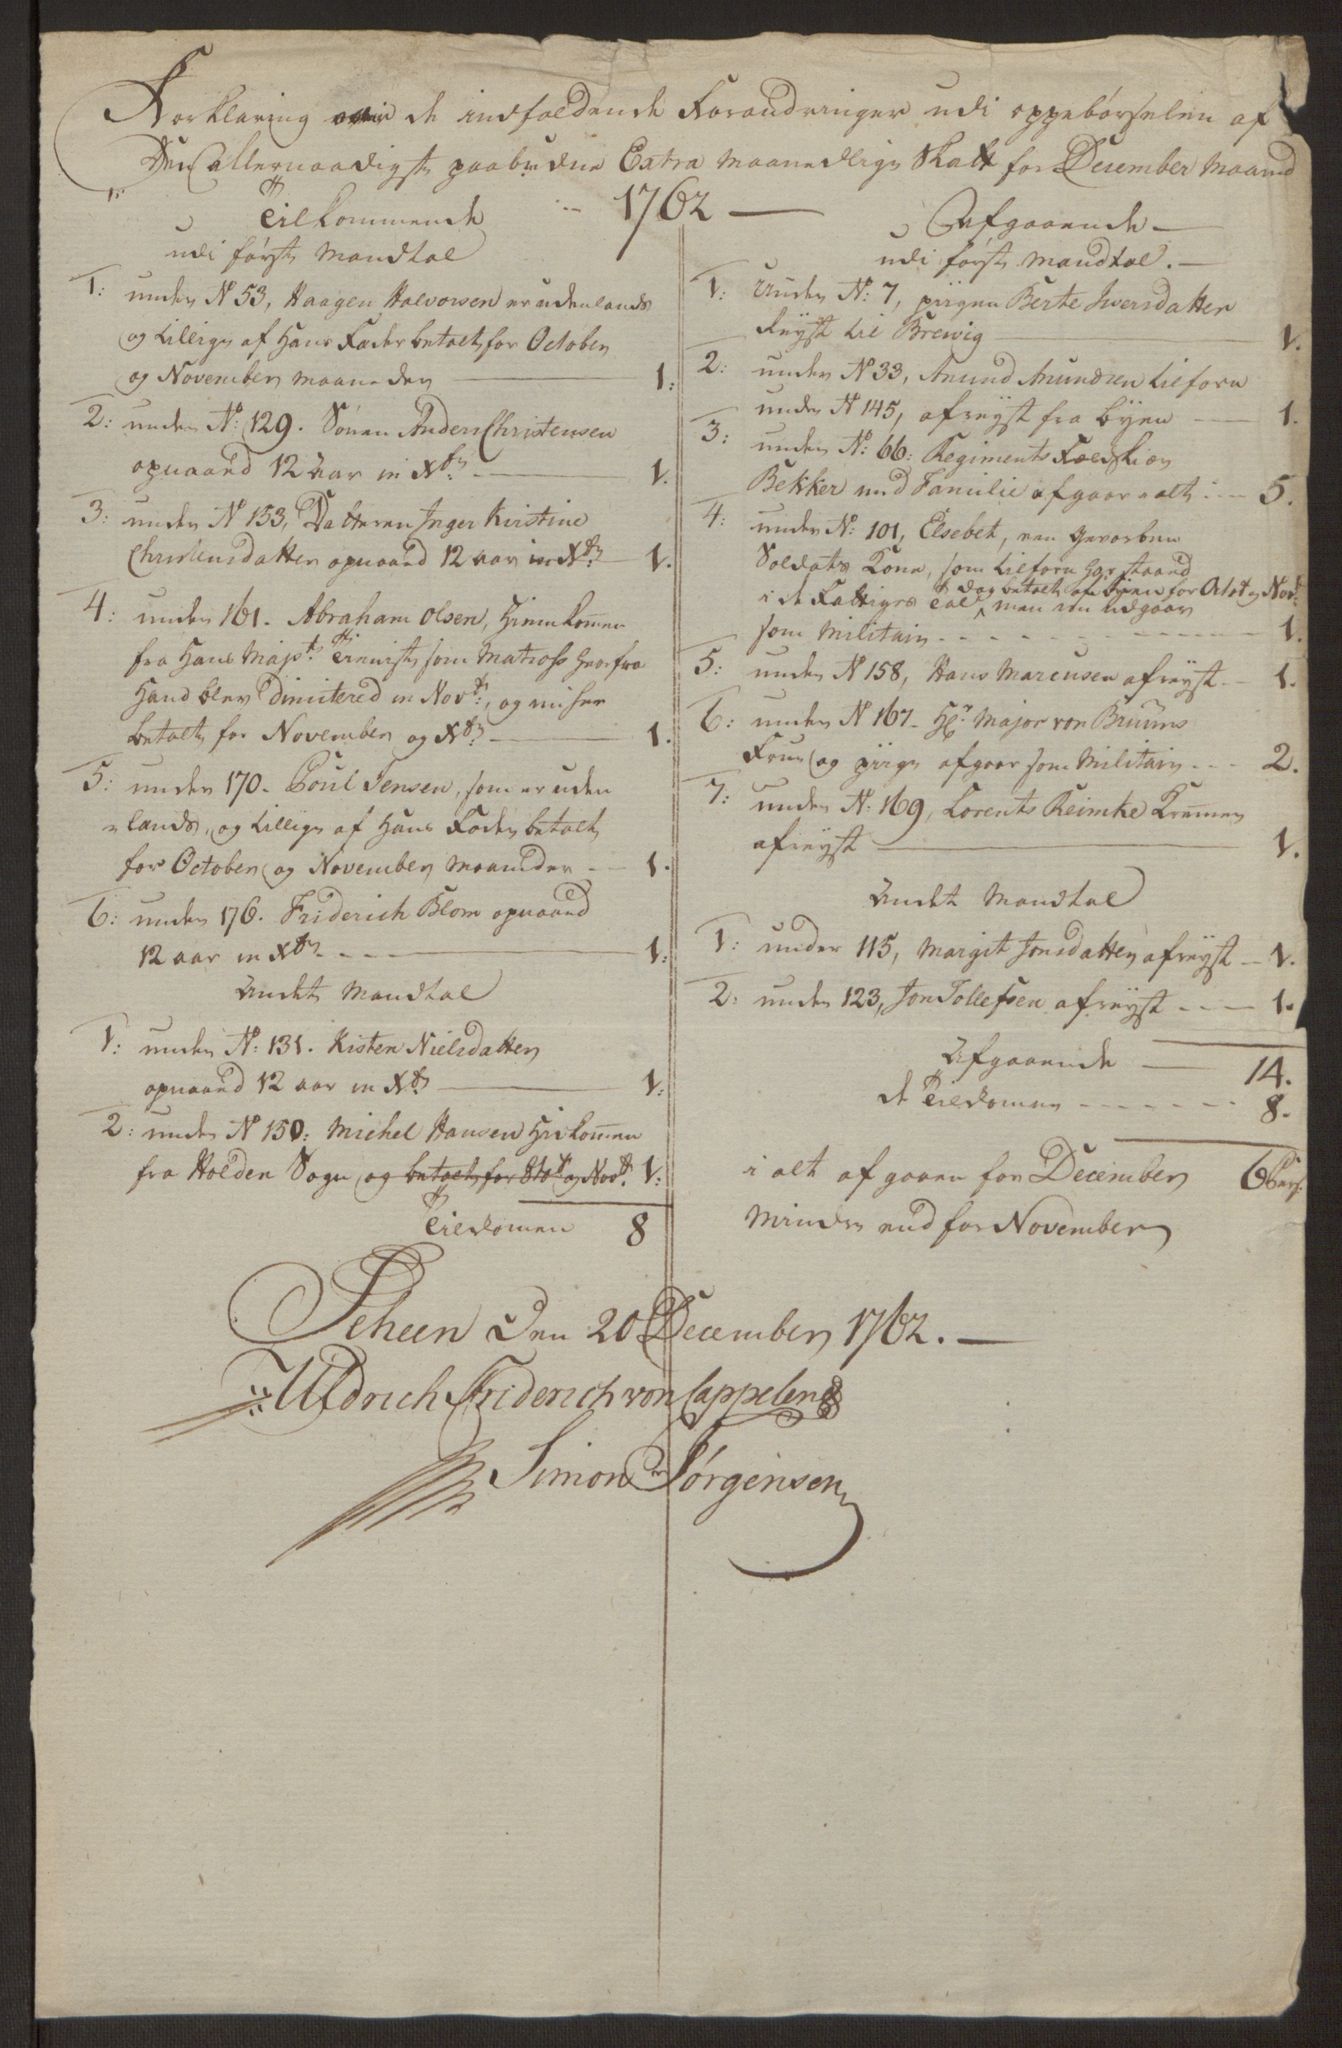 Forklaring over de indfaldende Forandringer udi oppebørselen af
Den allernaadigste paabudne Extra Maanedlige Skatt for December Maaned
1762
Tilkommende
udi første Mandtal
1: under N 53, Haagen Halvorsen er udenlands
og tillige af Hans Fader betalt for October
og November Maaneder 1:
2: under N: 129. Sönen Anders Christensen
opnaaed 12 Aar in Xbr 1.
3: under N 153, Datteren Inger Kirstine
Christensdatter opnaaed 12 aar in Xbr 1.
4: under 161. Abraham Olsen, Hiemkommen
fra Hans Mayst. Tienniste som Matross hvorfra
Hand blev Dimitered in Novbr, og nu her
betalt for November og Xbr 1.
5: under 170. Poul Jensen, som er uden
lands, og tillige af Hans Fader betalt
for October og November Maaneder 1.
6: under 176. Friderich Blom opnaaed
12 aar in Xbr 1:
Andet Mandtal
1: under N: 131. Kisten Nielsdatter
opnaaed 12 aar in Xbr 1:
2: under N 150: Michel Hansen Hidkommen
fra Holden Sogn og betalt for Octbr og Novbr. 1:
Tilkomen 8
Afgaaende
udi første Mandtal.
1: Under N: 7, piigen Berte Iversdatter
reyst til Brewig 1.
2: under N 33, Amund Amundsen tilforn
under N 145, afreyst fra byen 1.
3: under N: 66: Regiments Feldskier
Bekker med Familie afgaar alt 5.
4: under N: 101, Elsebet, en hvorben
Soldats Kone, som tilforn har staaed
i de Fattiges Tal dog betalt af for Octbr og Novbr
men nu udgaar
som Militair 1.
5: under N 158, Hans Marcusen afreyst 1.
6: under N 167. Hr Major von Bruuns
Frue og piige afgaar som Militair 2.
7: under N: 169, Lorents Reimke Kremer
afreyst 1.
Andet Mandtal
1: under 115, Margit Jonsdatter afreyst 1.
2: under 123, Jon Tollefsen afreyst 1.
Afgaaende 14.
de Tilkomen 8.
i alt afgaaen for December 6 Pers:
Mindre end for November
Scheen den 20 December 1762.
Uldrich Friderich von Cappelen
Simon Jörgensen